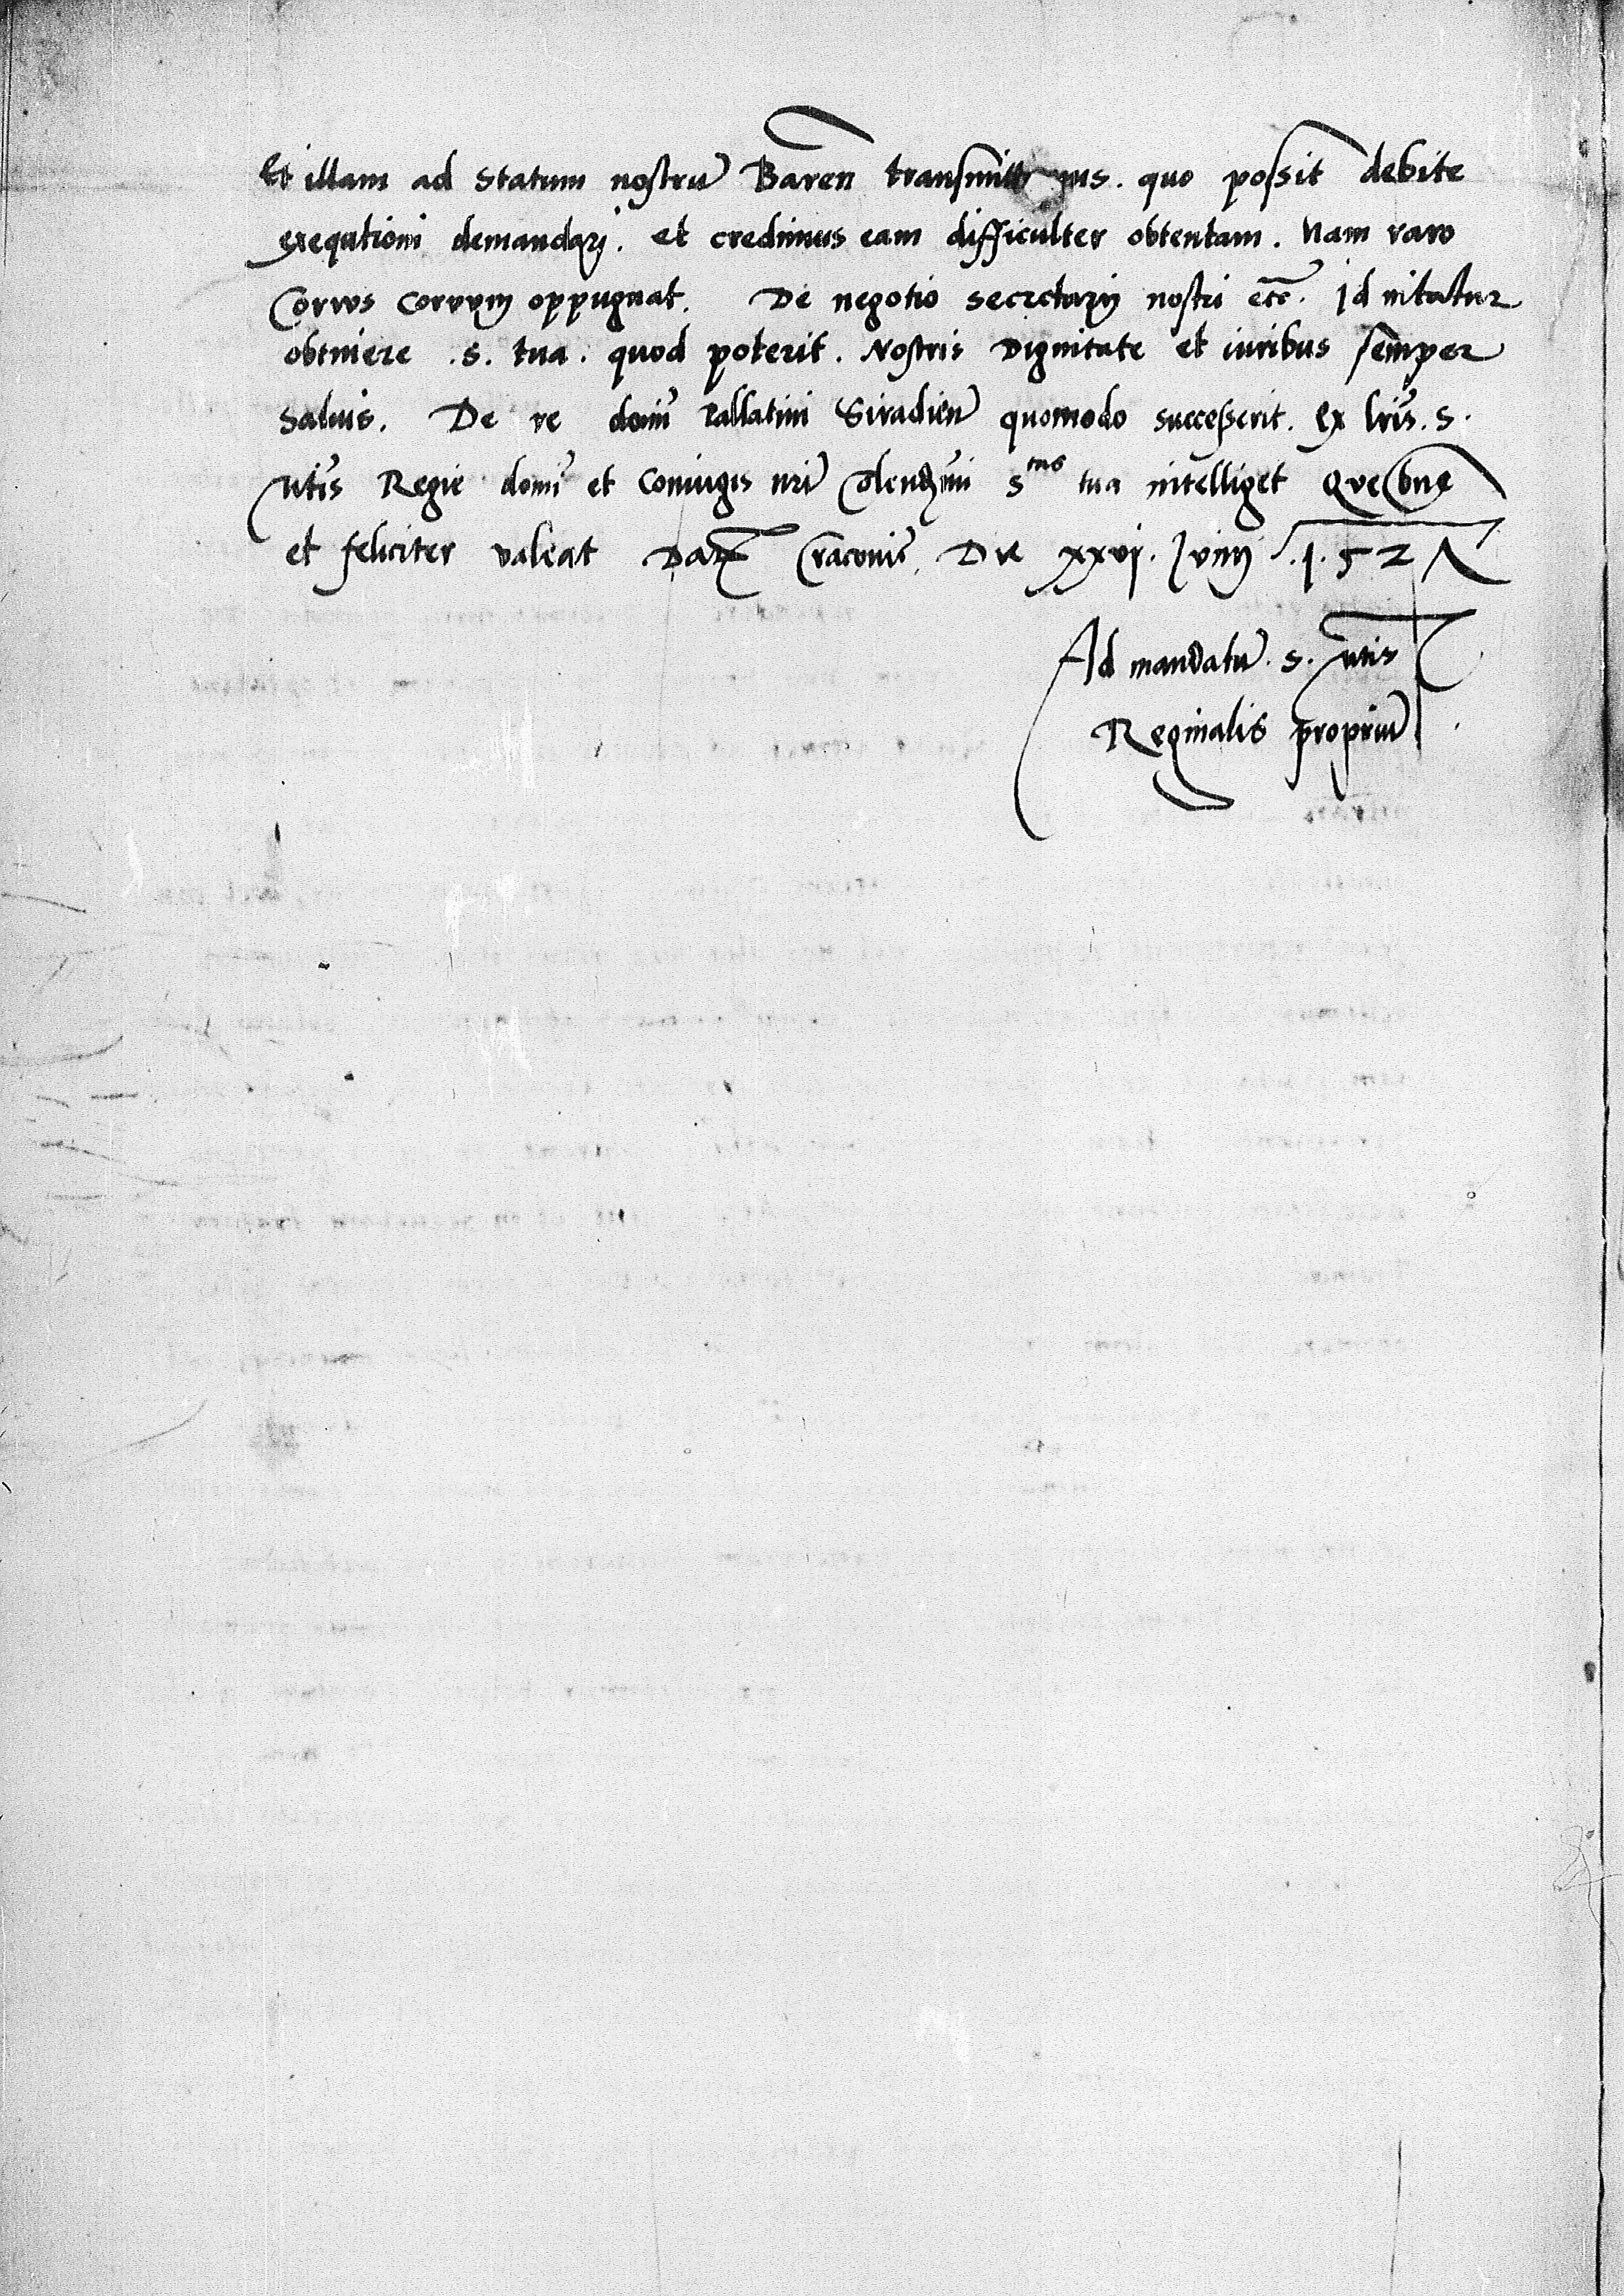 Et illam ad Statum nostrũ Bareñ transmittimus. quo possit debite
exequtioni demandari. et credimus eam difficulter obtentam. Nam raro
Corvus corvum oppugnat. De negotio secretarij nostri etc̃. Id nitatur
obtinere .s. tua. quod poterit. Nostris Dignitate et iuribus semper
salvis. De re domĩ Pallatini Siradieñ quomodo successerit. Ex lr̃is. s.
Mtĩs Regie domĩ et Coniugis nr̃i Colendissimi S tua intelliget Que bene
et feliciter valeat Dat̃ Cracovie. Die XXVI. Junij .1.5 2
Ad mandatũ. s. Mtis
Reginalis propriũ